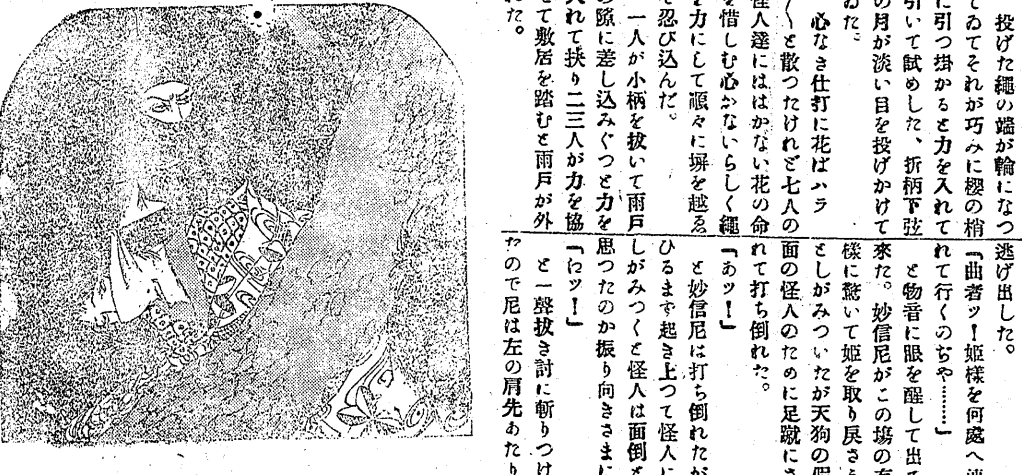 投げた繩の端が輪になつ
てゐてそれが巧みに櫻の梢
に引つ掛かると力を入れて
引いて試めした、折柄下弦
の月が淡い目を投げかけて
ゐた。
心なき仕打に花ばハラ
〱と散つたけれど七人の
怪人達にははかない花の命
を惜しむ心がないらしく繩
を力にして順々に塀を越ゑ
て忍び込んだ。
一人が小柄を拔いて雨戸
の隙に差し込みぐつと力を
入れて抉り二三人が力を協
せて敷居を踏むと雨戸が外
れた。
逃げ出した。
『曲者ッ!姫樣を何處へ
れて行くのぢや………』
と物音に眼を醒して出て
來た。妙信尼がこの塲の有
樣に驚いて姫を取り戻さ
としがみついたが天狗の假
面の怪人のために足蹴にさ
れて打ち倒れた。
『あッ!』
と妙信尼は打ち倒れたが
ひるまず起き上つて怪人に
しがみつくと怪人は面倒と
思つたのか振り向きさまに
『わッ!』
と一聲拔き討に斬りつけ
たので尼は左の肩先あたり